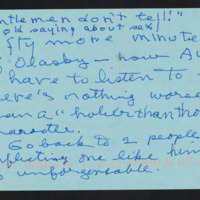 ntlemen don't tell!"
old saying about sex)
fty more minute
Olasby - how A
have to listen to
ere's nothing worse
an a "holier than tho
aracter.
Go back to 2 people
nflicting one like him
s unforgettable.